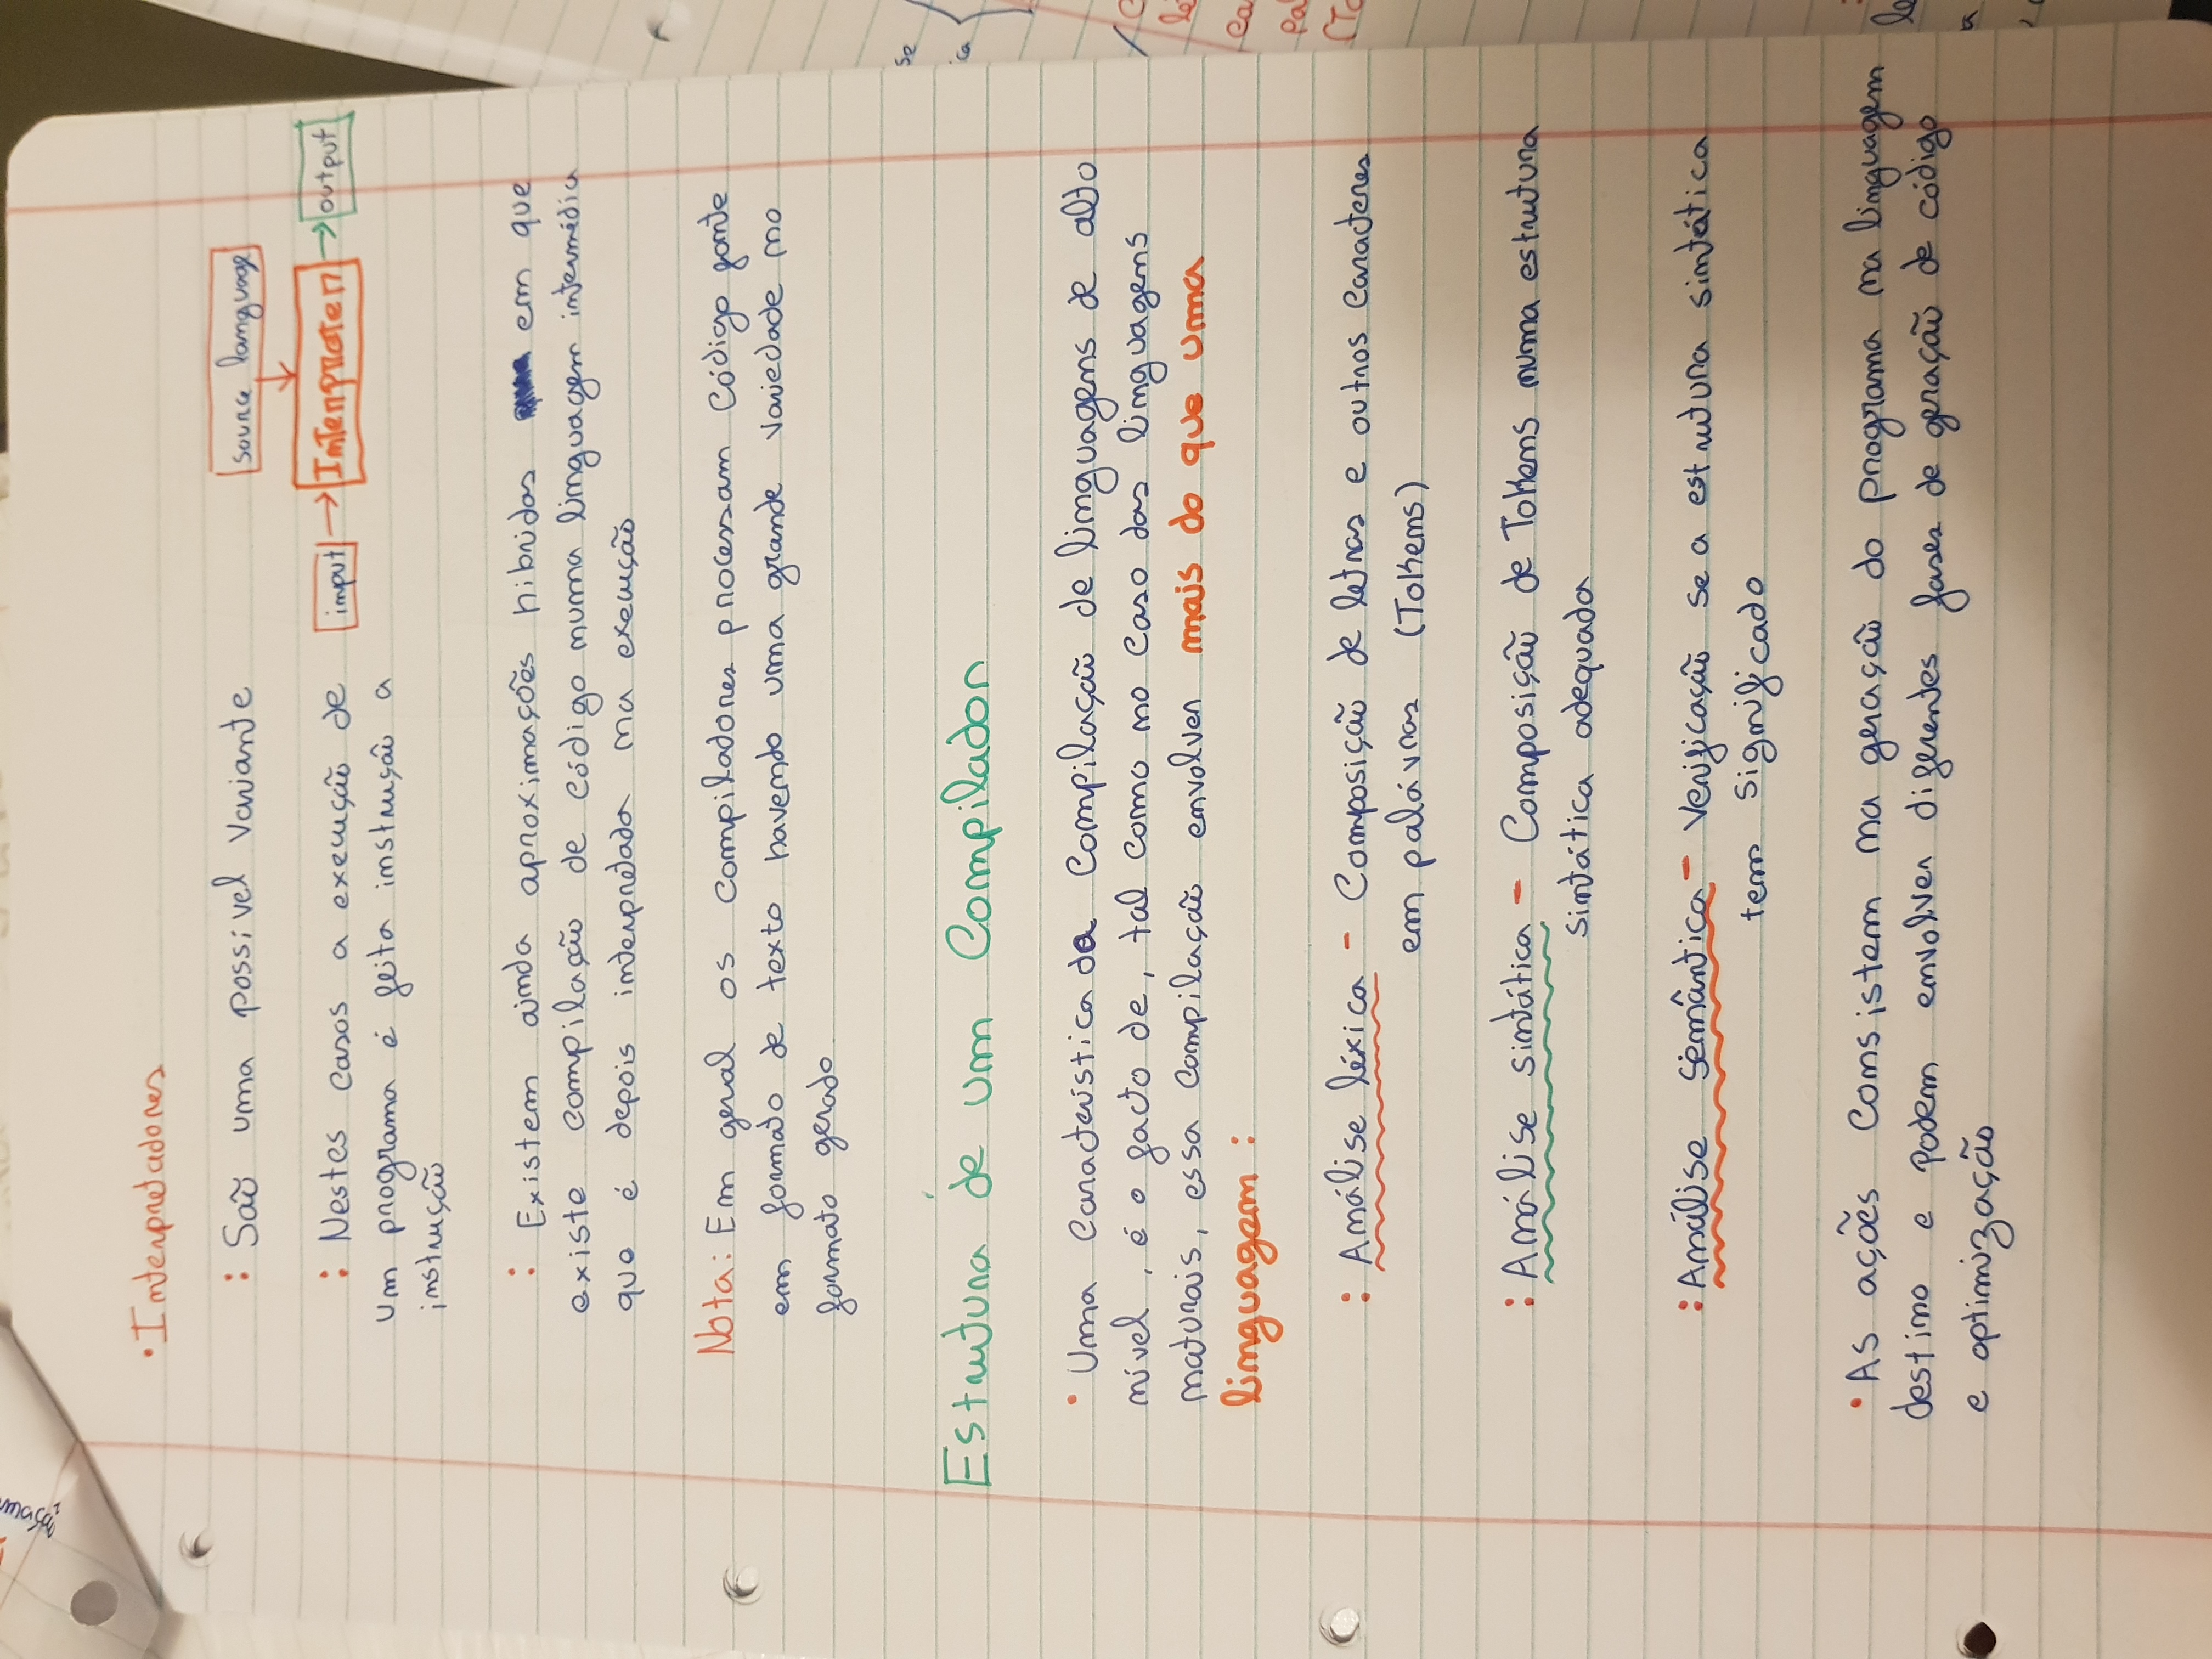 • Interpretadores
: São uma possível variante
source language
: Nestes casos a execução de
input → Interpreter → output
um programa é feita instrução a
instrução
: Existem ainda aproximações hibridas em que
existe compilação de código numa linguagem intermédia
que é depois interpretada na execução
Nota: Em geral os compiladores processam código fonte
em formato de texto havendo uma grande variedade no
formato gerado
Estrutura de um Compilador
• Uma característica da compilação de linguagens de alto
nível, é o facto de, tal como no caso das linguagens
naturais, essa compilação envolver mais do que uma
linguagem :
: Análise léxica - Composição de letras e outros caracteres
em palávras (Tokens)
: Análise sintática - Composição de Tokens numa estrutura
sintática adequada
: Análise semântica - Verificação se a estrutura sintática
tem significado
• As ações consistem na geração do programa na linguagem
destino e podem envolver diferentes fases de geração de código
e optimização